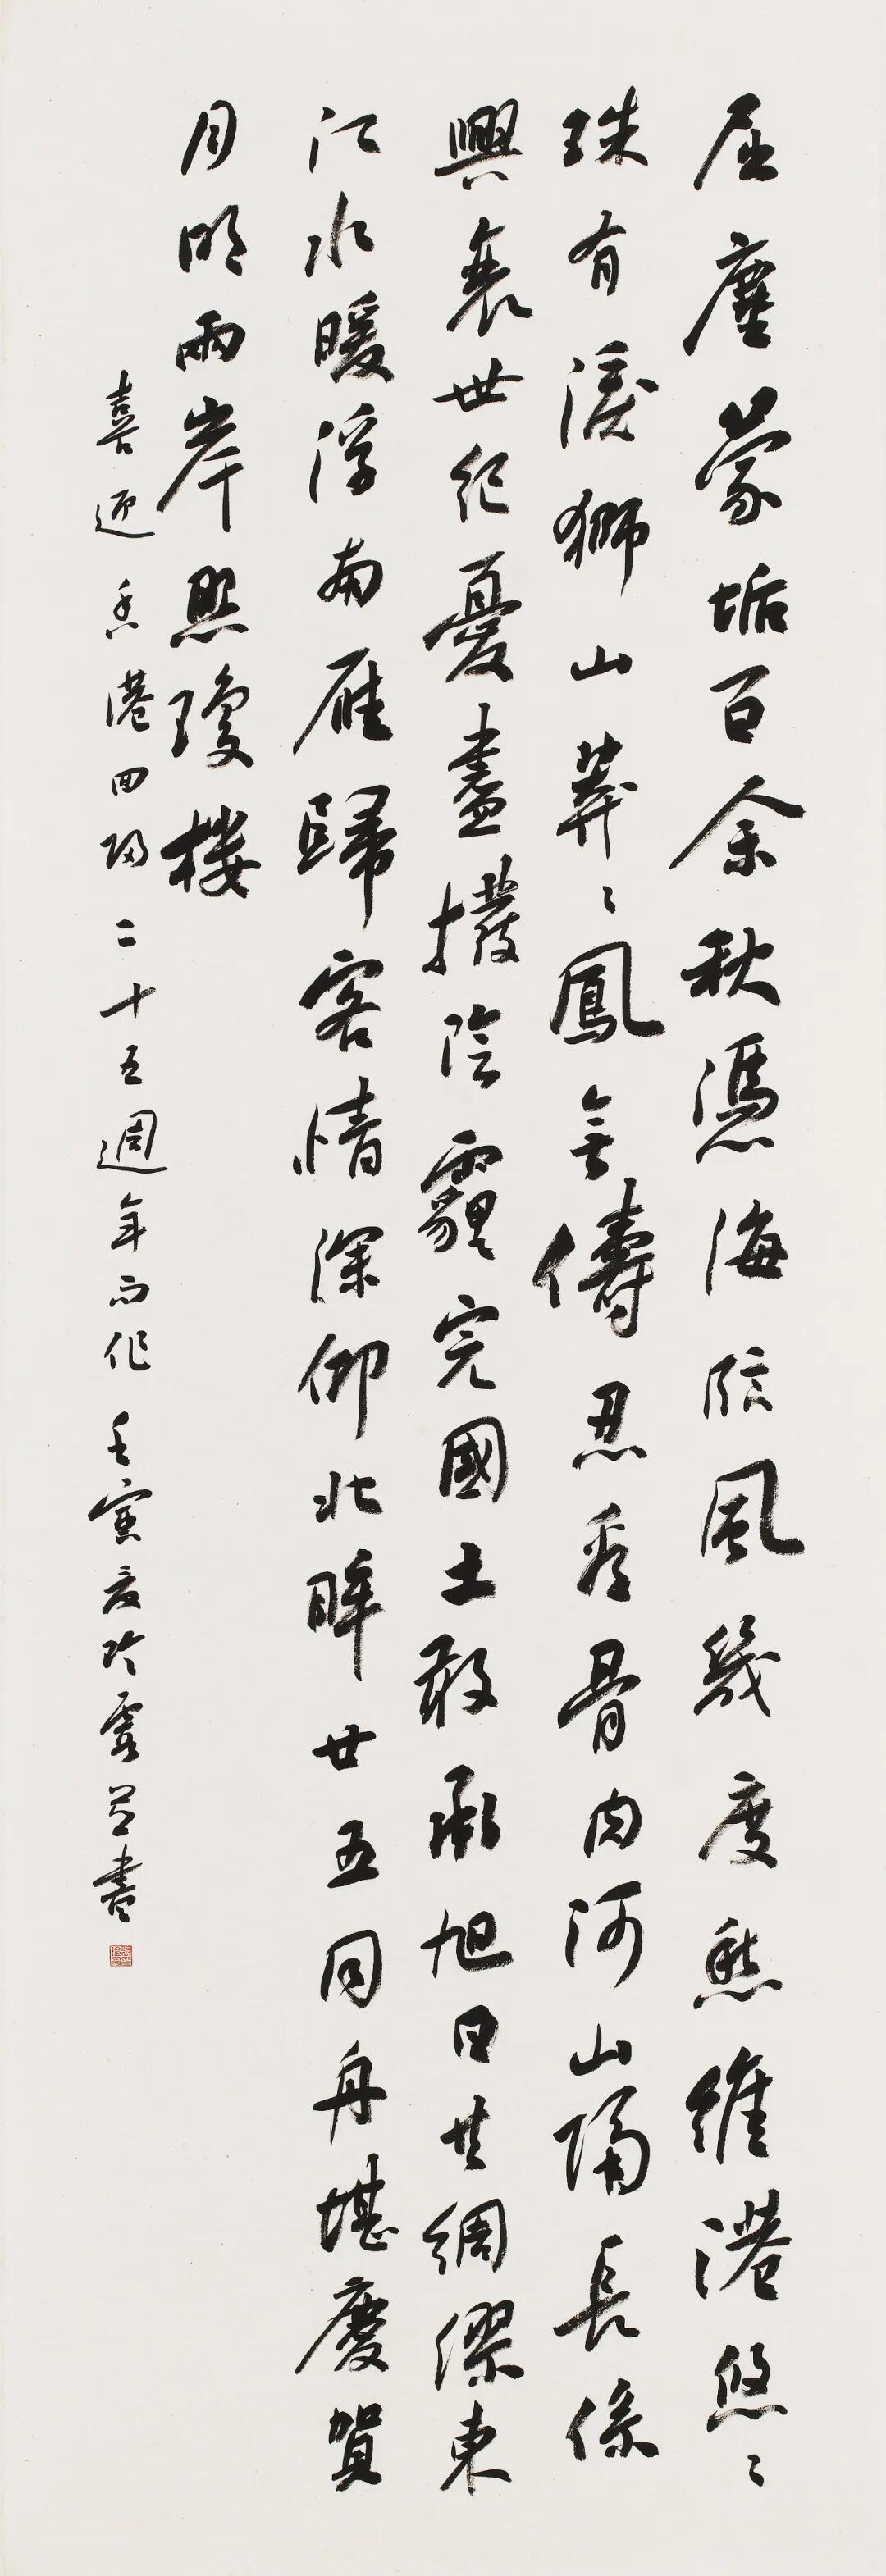 屈塵蒙垢百余秋憑海臨風幾度愁維港悠〻
珠有淚獅山莽〻鳳無儔忍看骨肉河山隔長係
興衰世紀憂盡撥陰霾完國土敢承旭日共綢繆東
江水暖浮南雁歸客情深仰北眸廿五同舟堪慶賀
月明兩岸照瓊樓
喜迎香港回歸二十五週年而作壬寅夏吟霞并書